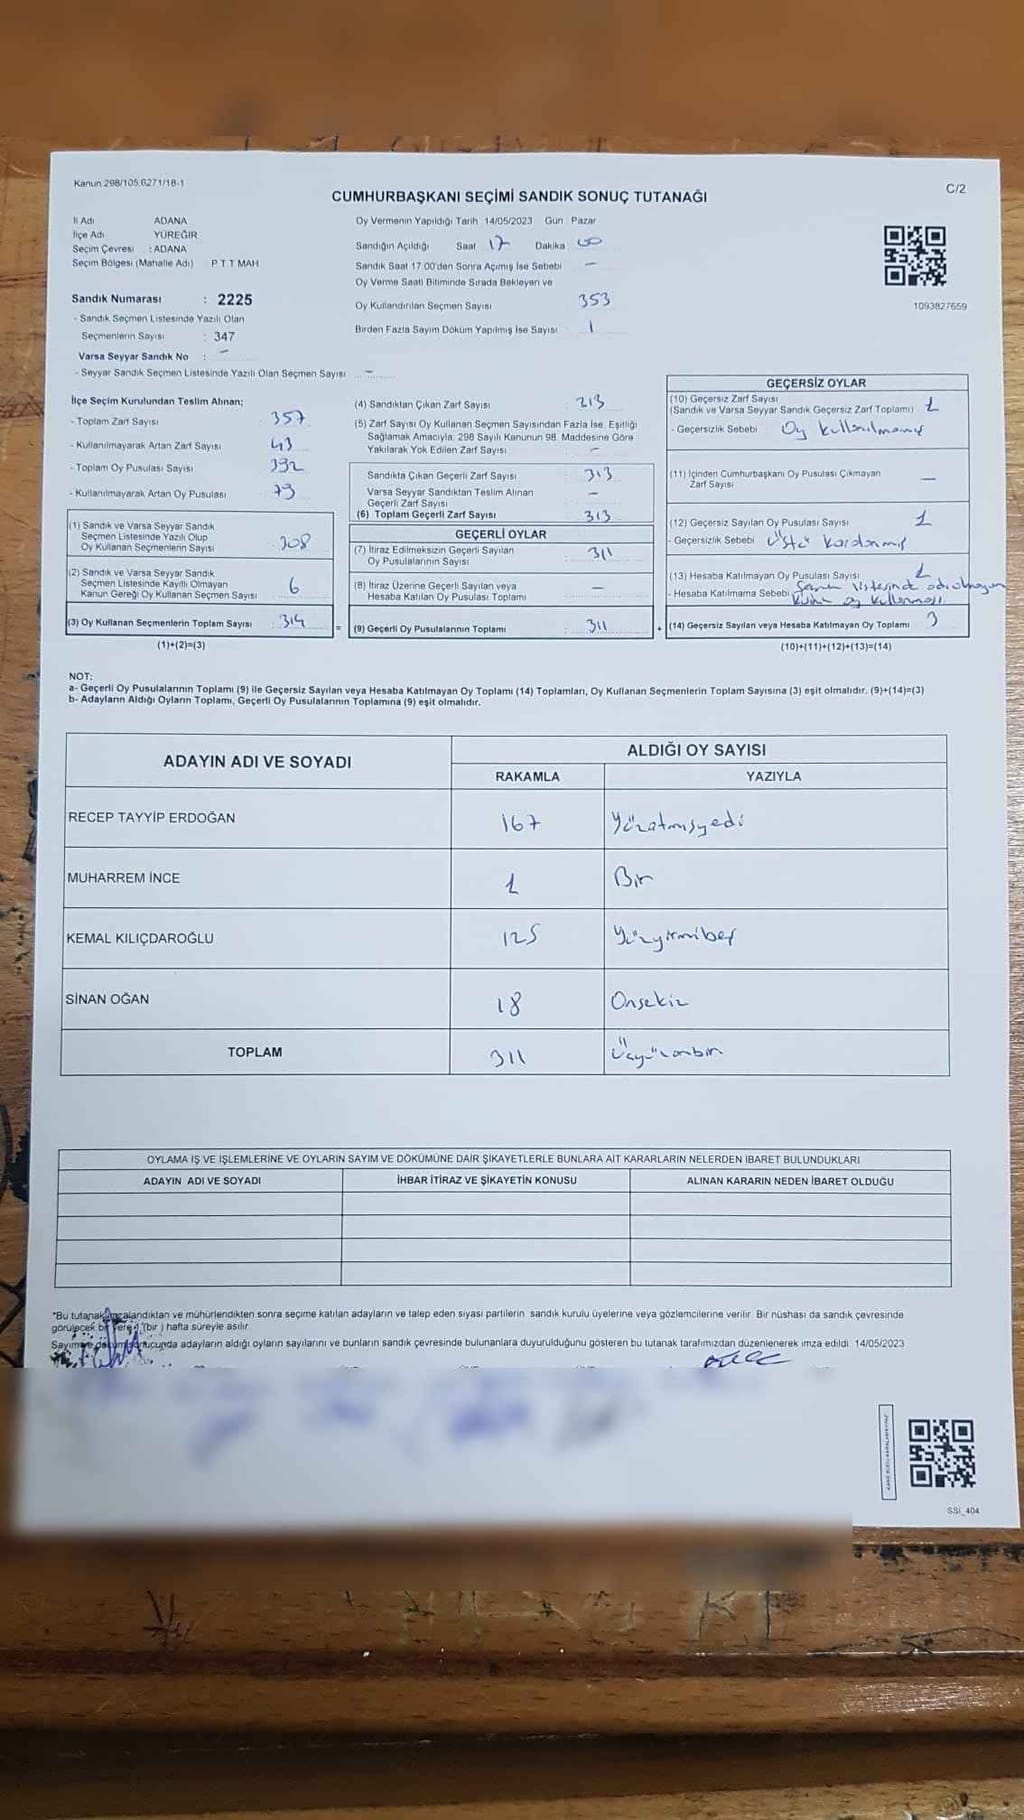 Kanun 298/105,6271/18-1
C/2
CUMHURBAŞKANI SEÇİMİ SANDIK SONUÇ TUTANAĞI
İl Adı ADANA
İlçe Adı YÜREĞİR
Seçim Çevresi : ADANA
Seçim Bölgesi (Mahalle Adı) P T T MAH
Sandık Numarası : 2225
- Sandık Seçmen Listesinde Yazılı Olan
Seçmenlerin Sayısı : 347
Varsa Seyyar Sandık No : -
- Seyyar Sandık Seçmen Listesinde Yazılı Olan Seçmen Sayısı -
Oy Vermenin Yapıldığı Tarih 14/05/2023 Gün Pazar
Sandığın Açıldığı Saat 17 Dakika 00
Sandık Saat 17 00'den Sonra Açımış İse Sebebi -
Oy Verme Saati Bitiminde Sırada Bekleyen ve
Oy Kullandırılan Seçmen Sayısı 353
Birden Fazla Sayım Döküm Yapılmış İse Sayısı 1
1093827659
İlçe Seçim Kurulundan Teslim Alınan;
- Toplam Zarf Sayısı 357
- Kullanılmayarak Artan Zarf Sayısı 43
- Toplam Oy Pusulası Sayısı 392
- Kullanılmayarak Artan Oy Pusulası 79
(1) Sandık ve Varsa Seyyar Sandık
Seçmen Listesinde Yazılı Olup
Oy Kullanan Seçmenlerin Sayısı 308
(2) Sandık ve Varsa Seyyar Sandık
Seçmen Listesinde Kayıtlı Olmayan
Kanun Gereği Oy Kullanan Seçmen Sayısı 6
(3) Oy Kullanan Seçmenlerin Toplam Sayısı 314
(1)+(2)=(3)
(4) Sandıktan Çıkan Zarf Sayısı 313
(5) Zarf Sayısı Oy Kullanan Seçmen Sayısından Fazla İse, Eşitliği
Sağlamak Amacıyla, 298 Sayılı Kanunun 98. Maddesine Göre
Yakılarak Yok Edilen Zarf Sayısı -
Sandıkta Çıkan Geçerli Zarf Sayısı 313
Varsa Seyyar Sandıktan Teslim Alınan
Geçerli Zarf Sayısı -
(6) Toplam Geçerli Zarf Sayısı 313
GEÇERLİ OYLAR
(7) İtiraz Edilmeksizin Geçerli Sayılan
Oy Pusulalarının Sayısı 311
(8) İtiraz Üzerine Geçerli Sayılan veya
Hesaba Katılan Oy Pusulası Toplamı -
= (9) Geçerli Oy Pusulalarının Toplamı 311 +
GEÇERSİZ OYLAR
(10) Geçersiz Zarf Sayısı
(Sandık ve Varsa Seyyar Sandık Geçersiz Zarf Toplamı) 1
- Geçersizlik Sebebi Oy kullanılmamış
(11) İçinden Cumhurbaşkanı Oy Pusulası Çıkmayan
Zarf Sayısı -
(12) Geçersiz Sayılan Oy Pusulası Sayısı 1
- Geçersizlik Sebebi Üstü
(13) Hesaba Katılmayan Oy Pusulası Sayısı 1
- Hesaba Katılmama Sebebi Seçmen listesinde adı olmayan
oy kullanması
(14) Geçersiz Sayılan veya Hesaba Katılmayan Oy Toplamı 3
(10)+(11)+(12)+(13)=(14)
NOT:
a- Geçerli Oy Pusulalarının Toplamı (9) ile Geçersiz Sayılan veya Hesaba Katılmayan Oy Toplamı (14) Toplamları, Oy Kullanan Seçmenlerin Toplam Sayısına (3) eşit olmalıdır. (9)+(14)=(3)
b- Adayların Aldığı Oyların Toplamı, Geçerli Oy Pusulalarının Toplamına (9) eşit olmalıdır.
ADAYIN ADI VE SOYADI
ALDIĞI OY SAYISI
RAKAMLA YAZIYLA
RECEP TAYYİP ERDOĞAN 167 Yüzatmışyedi
MUHARREM İNCE 1 Bir
KEMAL KILIÇDAROĞLU 125 Yüzyirmibeş
SİNAN OĞAN 18 Onsekiz
TOPLAM 311 Üçyüzonbir
OYLAMA İŞ VE İŞLEMLERİNE VE OYLARIN SAYIM VE DÖKÜMÜNE DAİR ŞİKAYETLERLE BUNLARA AİT KARARLARIN NELERDEN İBARET BULUNDUKLARI
ADAYIN ADI VE SOYADI İHBAR İTİRAZ VE ŞİKAYETİN KONUSU ALINAN KARARIN NEDEN İBARET OLDUĞU
*Bu tutanak imzalandıktan ve mühürlendikten sonra seçime katılan adayların ve talep eden siyasi partilerin sandık kurulu üyelerine veya gözlemcilerine verilir. Bir nüshası da sandık çevresinde
görülecek bir yere 1 (bir ) hafta süreyle asılır.
Sayım ve döküm sonucunda adayların aldığı oyların sayılarını ve bunların sandık çevresinde bulunanlara duyurulduğunu gösteren bu tutanak tarafımızdan düzenlenerek imza edildi 14/05/2023
SSI_404